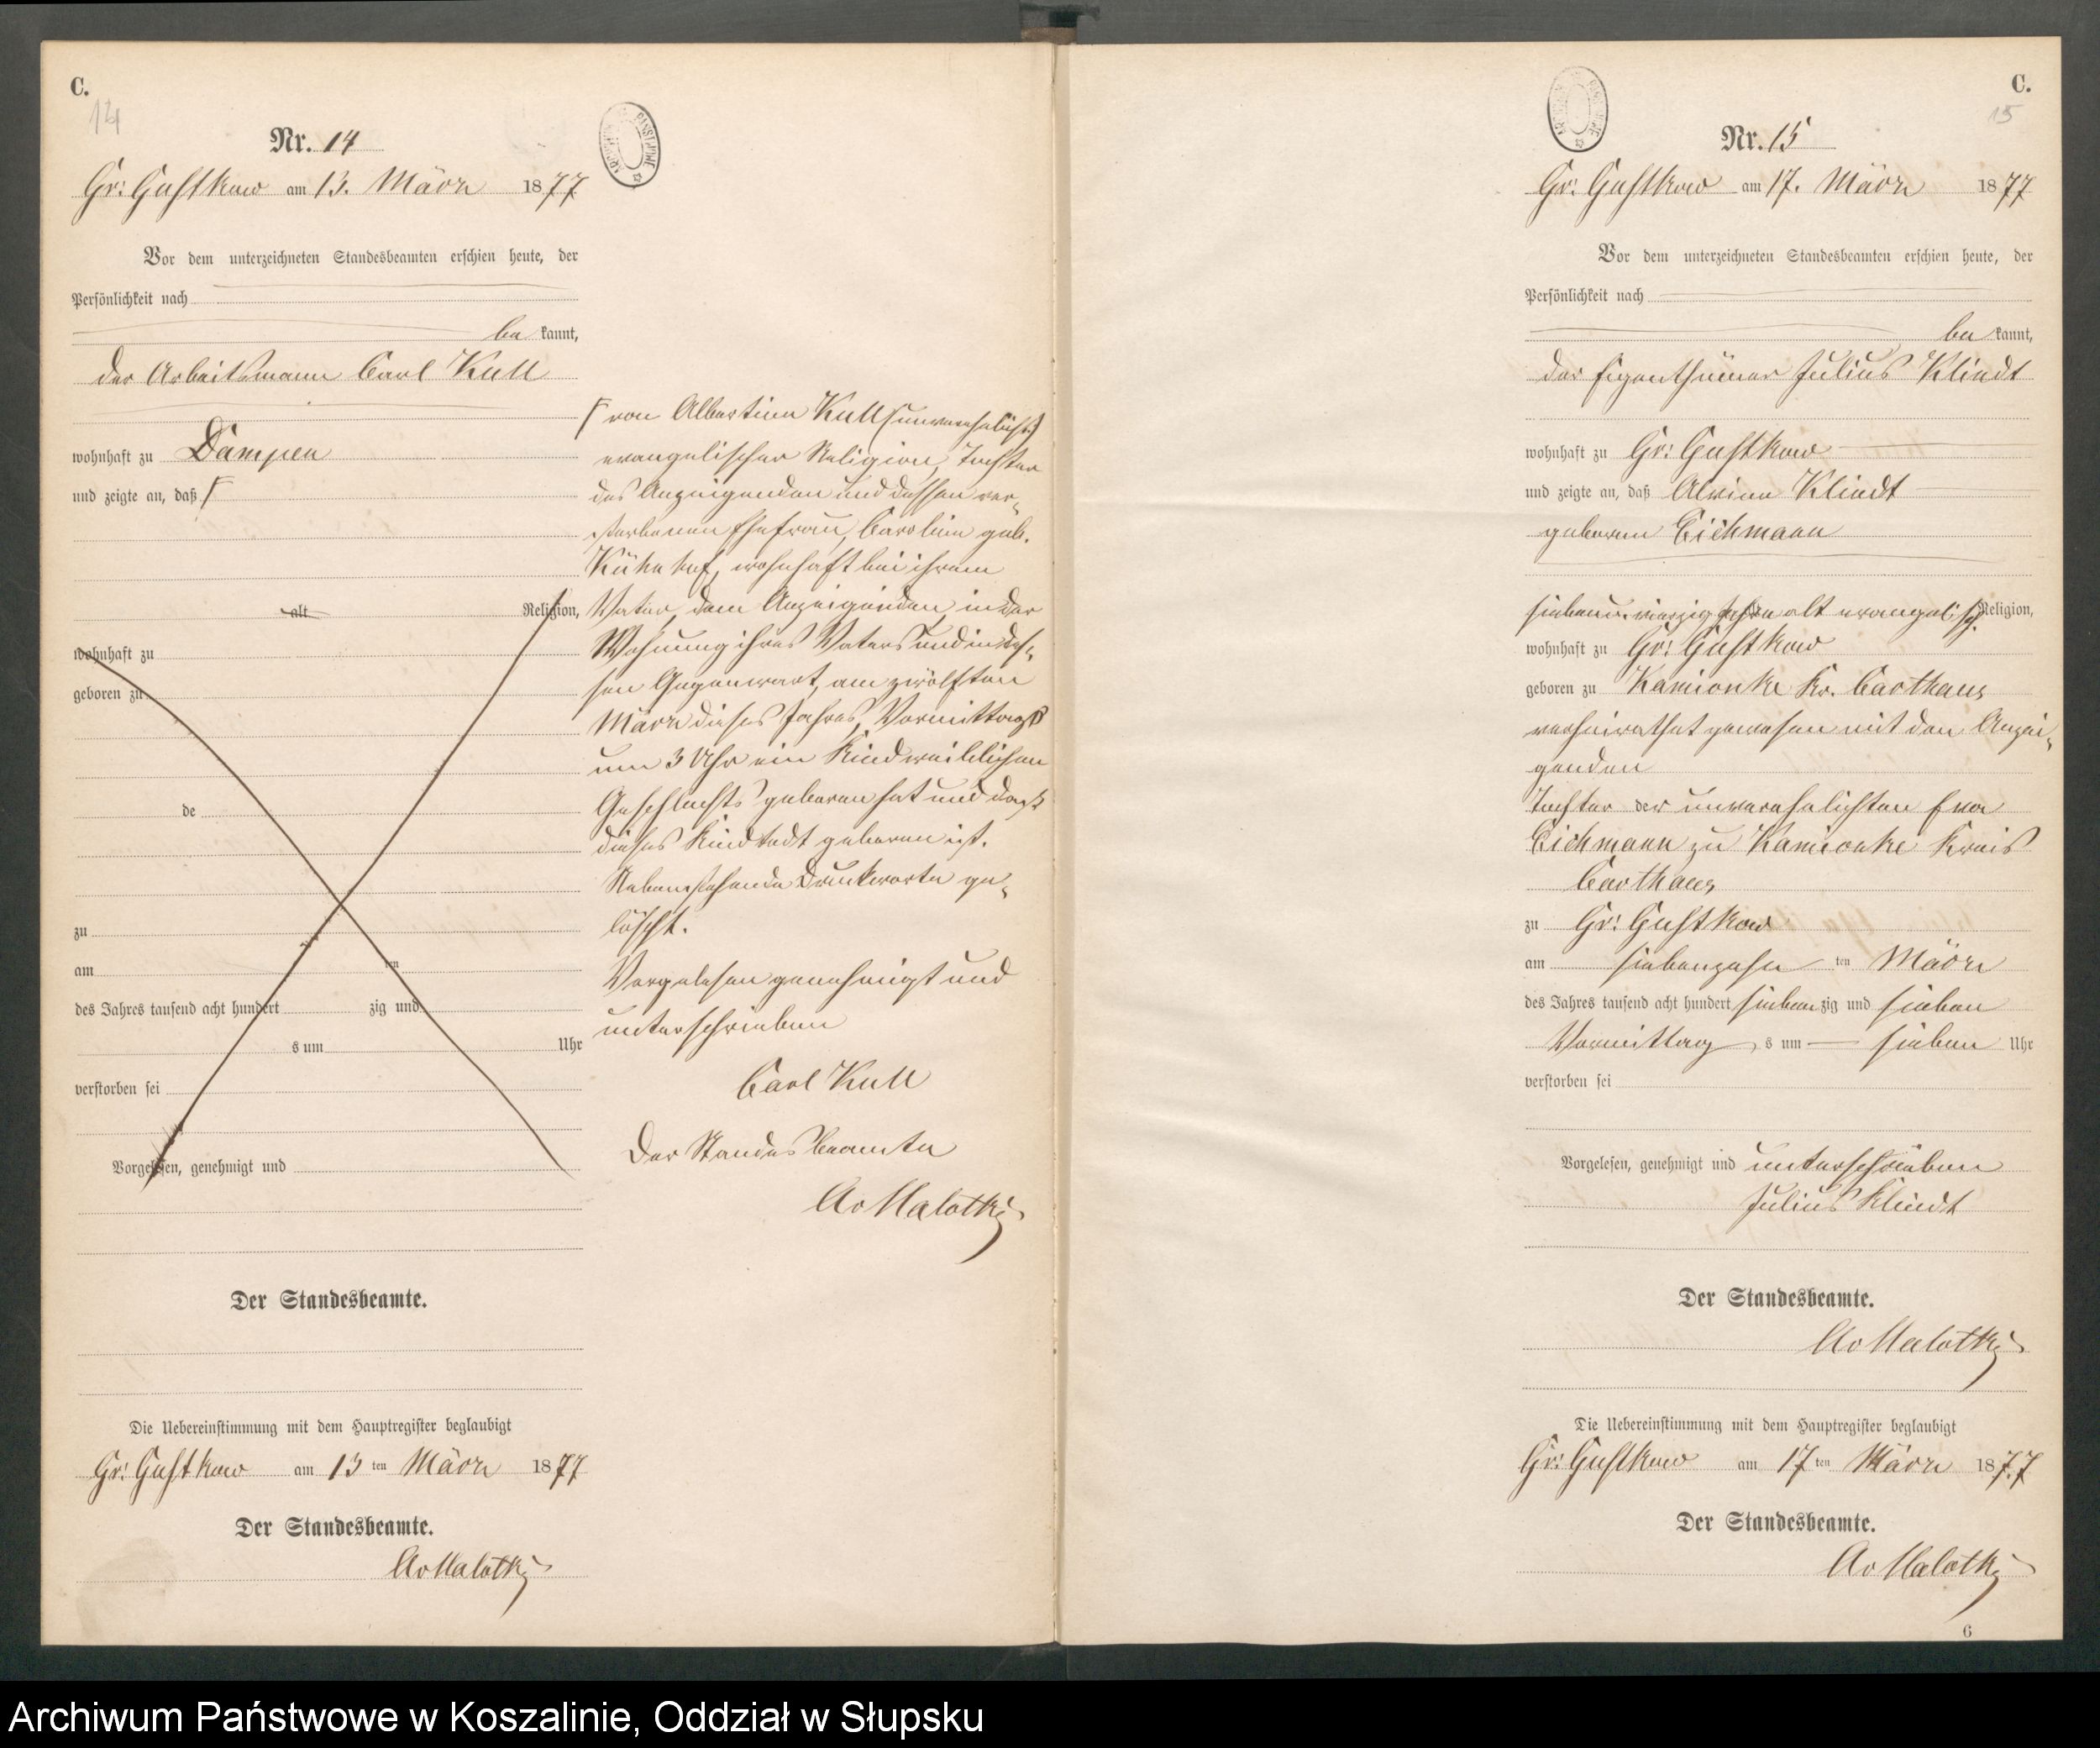 C.
14
Nr. 14
Gr: Gustkow am 13. März 1877
Vor dem unterzeichneten Standesbeamten erschien heute, der
Persönlichkeit nach
be kannt,
der Arbeitsmann Carl Kull
wohnhaft zu Dampen
und zeigte an, daß Γ
alt Religion,
wohnhaft zu
geboren zu
de
zu
am ten
des Jahres tausend acht hundert zig und
s um Uhr
verstorben sei
Vorgelesen, genehmigt und
Der Standesbeamte.
Die Uebereinstimmung mit dem Hauptregister beglaubigt
Gr: Gustkow am 13 ten März 1877
Der Standesbeamte.
Av Malotki
ARCHIWUM PAŃSTWOWE
Γ von Albertine Kull (unverehelicht)
evangelischer Religion, Tochter
des Anzeigenden und dessen ver-
storbenen Ehefrau, Caroline geb.
wohnhaft bei ihrem
Vater, dem Anzeigenden, in der
Wohnung ihres Vaters und in des-
sen Gegenwart, am zwölften
März dieses Jahres, Vormittags
um 3 Uhr ein Kind weiblichen
Geschlechts geboren hat und daß
dieses Kind todt geboren ist.
Nebenstehende Druckworte ge-
löscht.
Vorgelesen genehmigt und
unterschrieben
Carl Kull
Der Standesbeamte
Av Malotki
ARCHIWUM PAŃSTWOWE
C.
15
Nr. 15
Gr: Gustkow am 17. März 1877
Vor dem unterzeichneten Standesbeamten erschien heute, der
Persönlichkeit nach
be kannt,
der Eigenthümer Julius Klindt
wohnhaft zu Gr: Gustkow
und zeigte an, daß Alvine Klindt
geborene Eichmann
siebenu.vierzig Jahre alt evangelisch. Religion,
wohnhaft zu Gr: Gustkow
geboren zu Kamionke Kr. Carthaus
verheirathet gewesen mit den Anzei-
genden
Tochter der unverehelichten Eva
Eichmann zu Kamionke Kreis
Carthaus
zu Gr: Gustkow
am siebenzehn ten März
des Jahres tausend acht hundert sieben zig und sieben
Vormittag s um sieben Uhr
verstorben sei
Vorgelesen, genehmigt und unterschrieben
Julius Klindt
Der Standesbeamte.
Av Malotki
Die Uebereinstimmung mit dem Hauptregister beglaubigt
Gr: Gustkow am 17 ten März 1877
Der Standesbeamte.
Av Malotki
6
Archiwum Państwowe w Koszalinie, Oddział w Słupsku